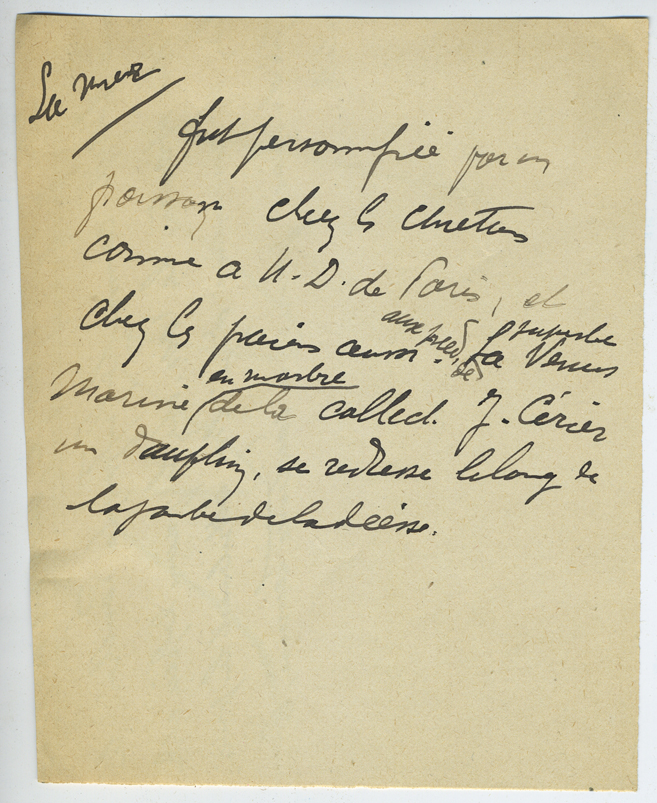 La mer
fut personnifiée par un
poisson chez les chrétiens
comme a N.-D. de Paris, et
chez les païens aussi. aux pieds de La superbe Venus
Marine en marbre de la collect. J.
un dauphin, se redresse le long de
la jambe de la déesse.